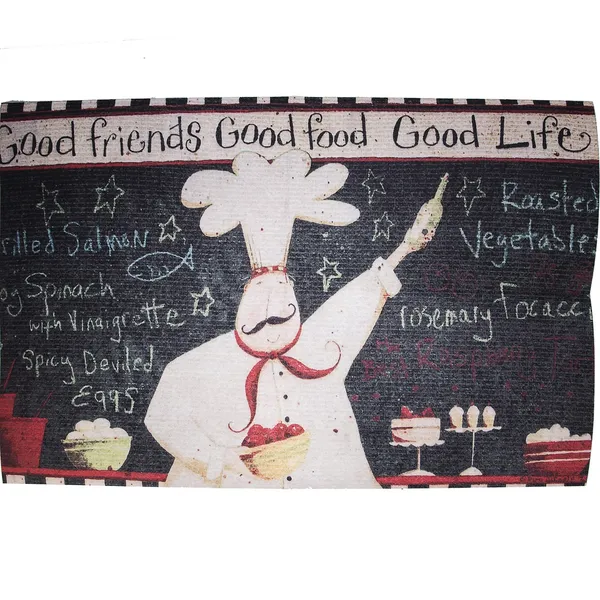 Good friends Good food Good Life
rilled Salmon
Roasted
Vegetables
Spinach
with Vinaigrette
rosemary Focacci
Spicy Deviled
Eggs